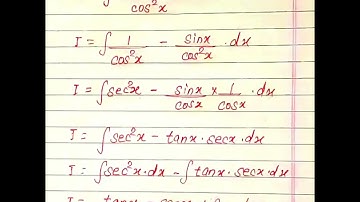 cos²x
I = ∫ 1/cos²x - sinx/cos²x .dx
I = ∫ sec²x - sinx/cosx × 1/cosx .dx
I = ∫ sec²x - tanx.secx.dx
I = ∫ sec²x.dx - ∫ tanx.secx.dx